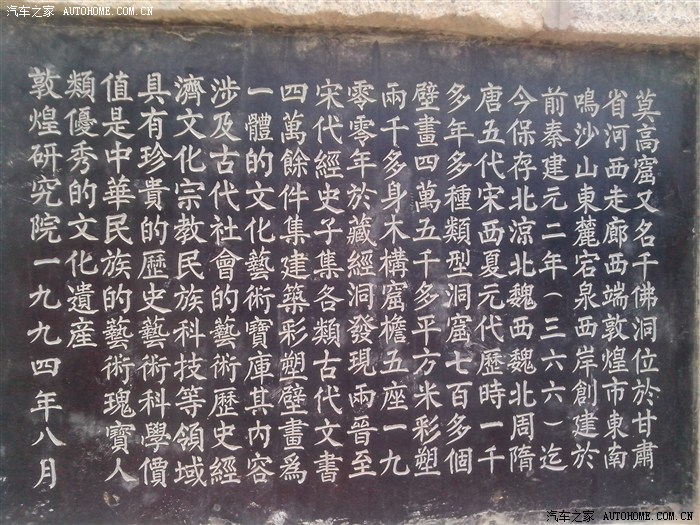 汽车之家 AUTOHOME.COM.CN
莫高窟又名千佛洞位於甘肅
省河西走廊西端敦煌市東南
鳴沙山東麓宕泉西岸創建於
前秦建元二年（三六六）迄
今保存北涼北魏西魏北周隋
唐五代宋西夏元代歷時一千
多年多種類型洞窟七百多個
壁畫四萬五千多平方米彩塑
兩千多身木構窟檐五座一九
零零年於藏經洞發現兩晉至
宋代經史子集各類古代文書
四萬餘件集建築彩塑壁畫為
一體的文化藝術寶庫其內容
涉及古代社會的藝術歷史經
濟文化宗教民族科技等領域
具有珍貴的歷史藝術科學價
值是中華民族的藝術瑰寶人
類優秀的文化遺產
敦煌研究院一九九四年八月
汽车之家 AUTOHOME.COM.CN